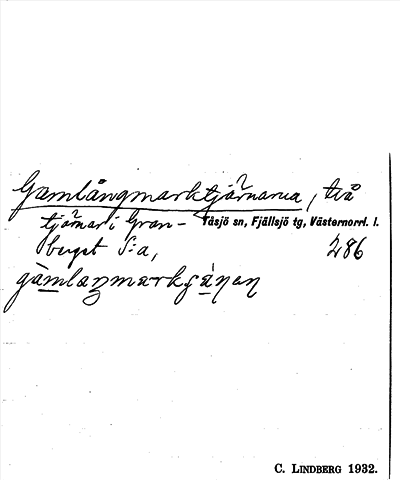 Gamlångmarktjärnarna, två
tjärnar i Gran-
Tåsjö sn, Fjällsjö tg, Västernorrl. l.
berget S:a,
286
C. LINDBERG 1932.